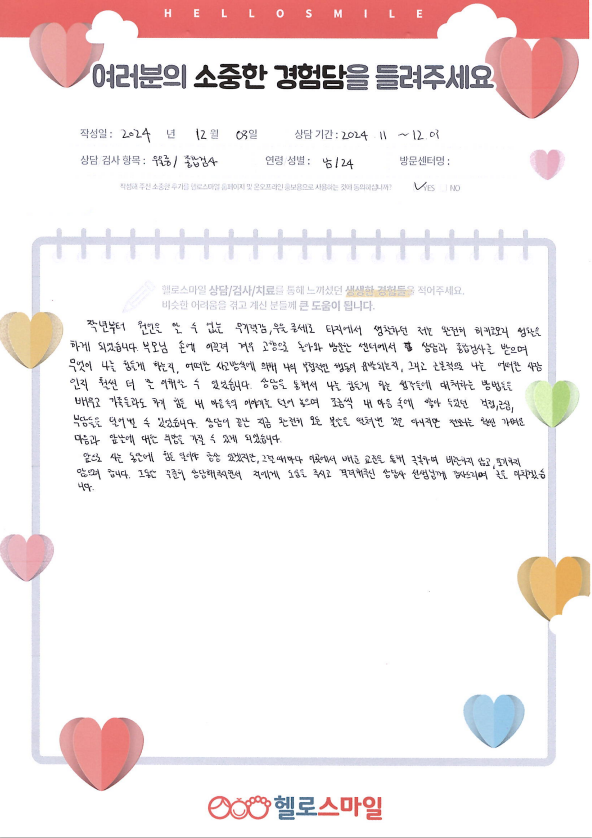 HELLOSMILE
여러분의 소중한 경험담을 들려주세요
작성일 : 2024 년 12 월 09일 상담 기간 : 2024 11 ~ 12
상담 검사 항목 : 우울증/ 종합검사 연령 성별 : 남/24 방문센터명 :
작성해 주신 소중한 후기를 헬로스마일 홈페이지 및 온오프라인 홍보용으로 사용하는 것에 동의하십니까? YES NO
헬로스마일 상담/검사/치료를 통해 느끼셨던 생생한 경험들을 적어주세요.
비슷한 어려움을 겪고 계신 분들께 큰 도움이 됩니다.
작년부터 원인을 알 수 없는 무기력감, 우울 증세로 타지에서 생활하던 저는 완전히 히키코모리 생활을
하게 되었습니다. 부모님 손에 이끌려 겨우 고향으로 돌아와 방문한 센터에서 상담과 종합검사를 받으며
무엇이 나를 힘들게 하는지, 어떠한 사고방식에 의해 나의 행동이 유발되는지, 그리고 근본적으로 나는 어떠한 사람
인지 훨씬 더 잘 이해할 수 있었습니다. 상담을 통해서 나를 힘들게 하는 생각들에 대처하는 방법들을
배우고 가족들과도 하기 힘든 내 마음속의 이야기를 털어 놓으며 조금씩 내 마음 속에 쌓아 두었던 걱정, 근심,
부담들을 덜어낼 수 있었습니다. 상담이 끝난 지금 완전히 모든 불안을 떨쳐낸 것은 아니지만 전보다는 훨씬 가벼운
마음과 앞날에 대한 희망을 가질 수 있게 되었습니다.
앞으로 사는 동안에 힘든 일이야 항상 있겠지만, 그럴 때마다 이곳에서 배운 교훈을 통해 극복하며 비관하지 않고, 포기하지
않으려 합니다. 그동안 꾸준히 상담해주시면서 저에게 도움을 주시고 격려해주신 상담사 선생님께 감사드리며 글을 마치겠습
니다.
헬로스마일